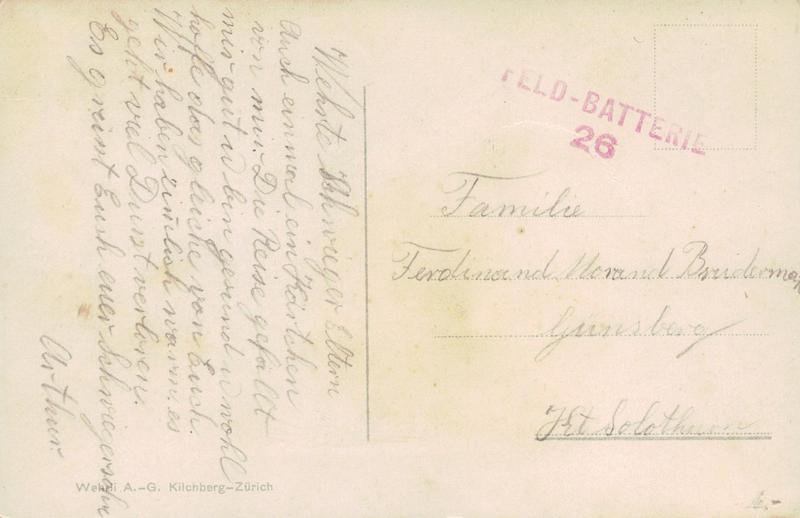 Wehrte Schwieger Eltern
Auch einmal ein Kärtchen
von mir. Die Reise gefällt
mir gut u bin gesund u wohl
hoffe das gleiche von Euch.
Wir haben zimlich warm, es
geht viel Durst verloren.
Es grüsst Euch euer Schwiegersohn
Arthur.
FELD-BATTERIE
26
Familie
Ferdinand Morand Bruderma
Günsberg
Kt Solothurn
Wehrli A.-G. Kilchberg-Zürich